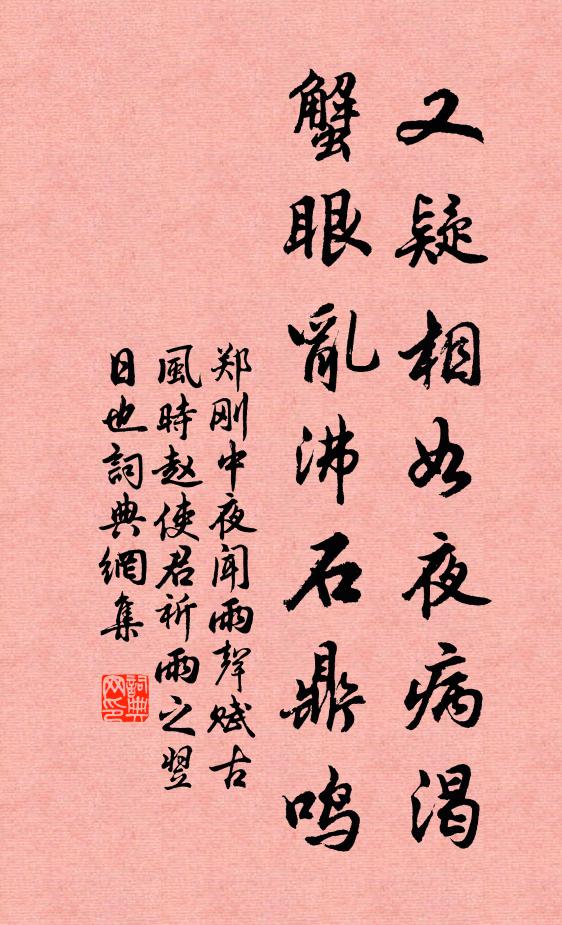 又疑相如夜病渴
蟹眼亂沸石鼎鸣
郑刚中夜闻雨聲赋古
風時赵使君祈雨之翌
日也詞典網集
詞典
网印